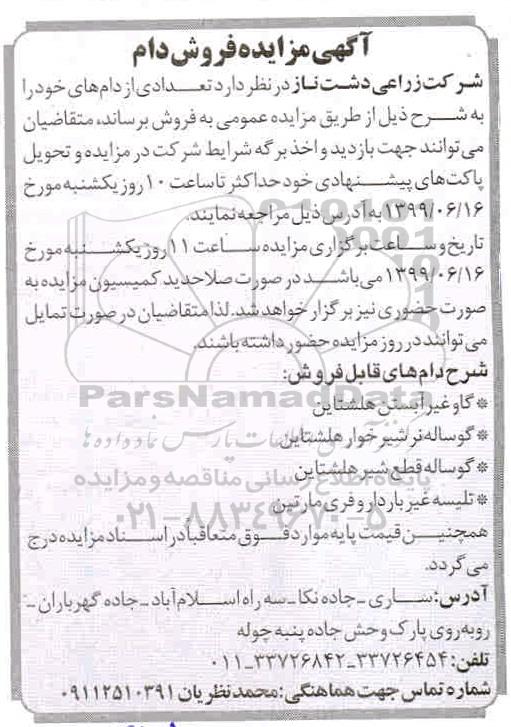 آگهی مزایده فروش دام
شرکت زراعی دشت ناز در نظر دارد تعدادی از دام‌های خود را
به شرح ذیل از طریق مزایده عمومی به فروش برساند، متقاضیان
می‌توانند جهت بازدید و اخذ برگه شرایط شرکت در مزایده و تحویل
پاکت‌های پیشنهادی خود حداکثر تا ساعت ۱۰ روز یکشنبه مورخ
۱۳۹۹/۰۶/۱۶ به آدرس ذیل مراجعه نمایند.
تاریخ و ساعت برگزاری مزایده ساعت ۱۱ روز یکشنبه مورخ
۱۳۹۹/۰۶/۱۶ می‌باشد در صورت صلاحدید کمیسیون مزایده به
صورت حضوری نیز برگزار خواهد شد. لذا متقاضیان در صورت تمایل
می‌توانند در روز مزایده حضور داشته باشند.
شرح دام‌های قابل فروش:
ParsNamadData
* گاو غیر آبستن هلشتاین
* گوساله نر شیرخوار هلشتاین
* گوساله قطع شیر هلشتاین
پایگاه اطلاع رسانی مناقصه و مزایده
* تلیسه غیر باردار و فری مارتین
۰۲۱-۸۸۳۴۹۶۷۰-۵
همچنین قیمت پایه موارد فوق متعاقبا در اسناد مزایده درج
می‌گردد.
آدرس: ساری ـ جاده نکا ـ سه راه اسلام‌آباد ـ جاده گهرباران ـ
روبه‌روی پارک وحش جاده پنبه چوله
تلفن: ۳۳۷۲۶۴۵۴ـ۳۳۷۲۶۸۴۲-۰۱۱
شماره تماس جهت هماهنگی: محمد نظریان ۰۹۱۱۲۵۱۰۳۹۱